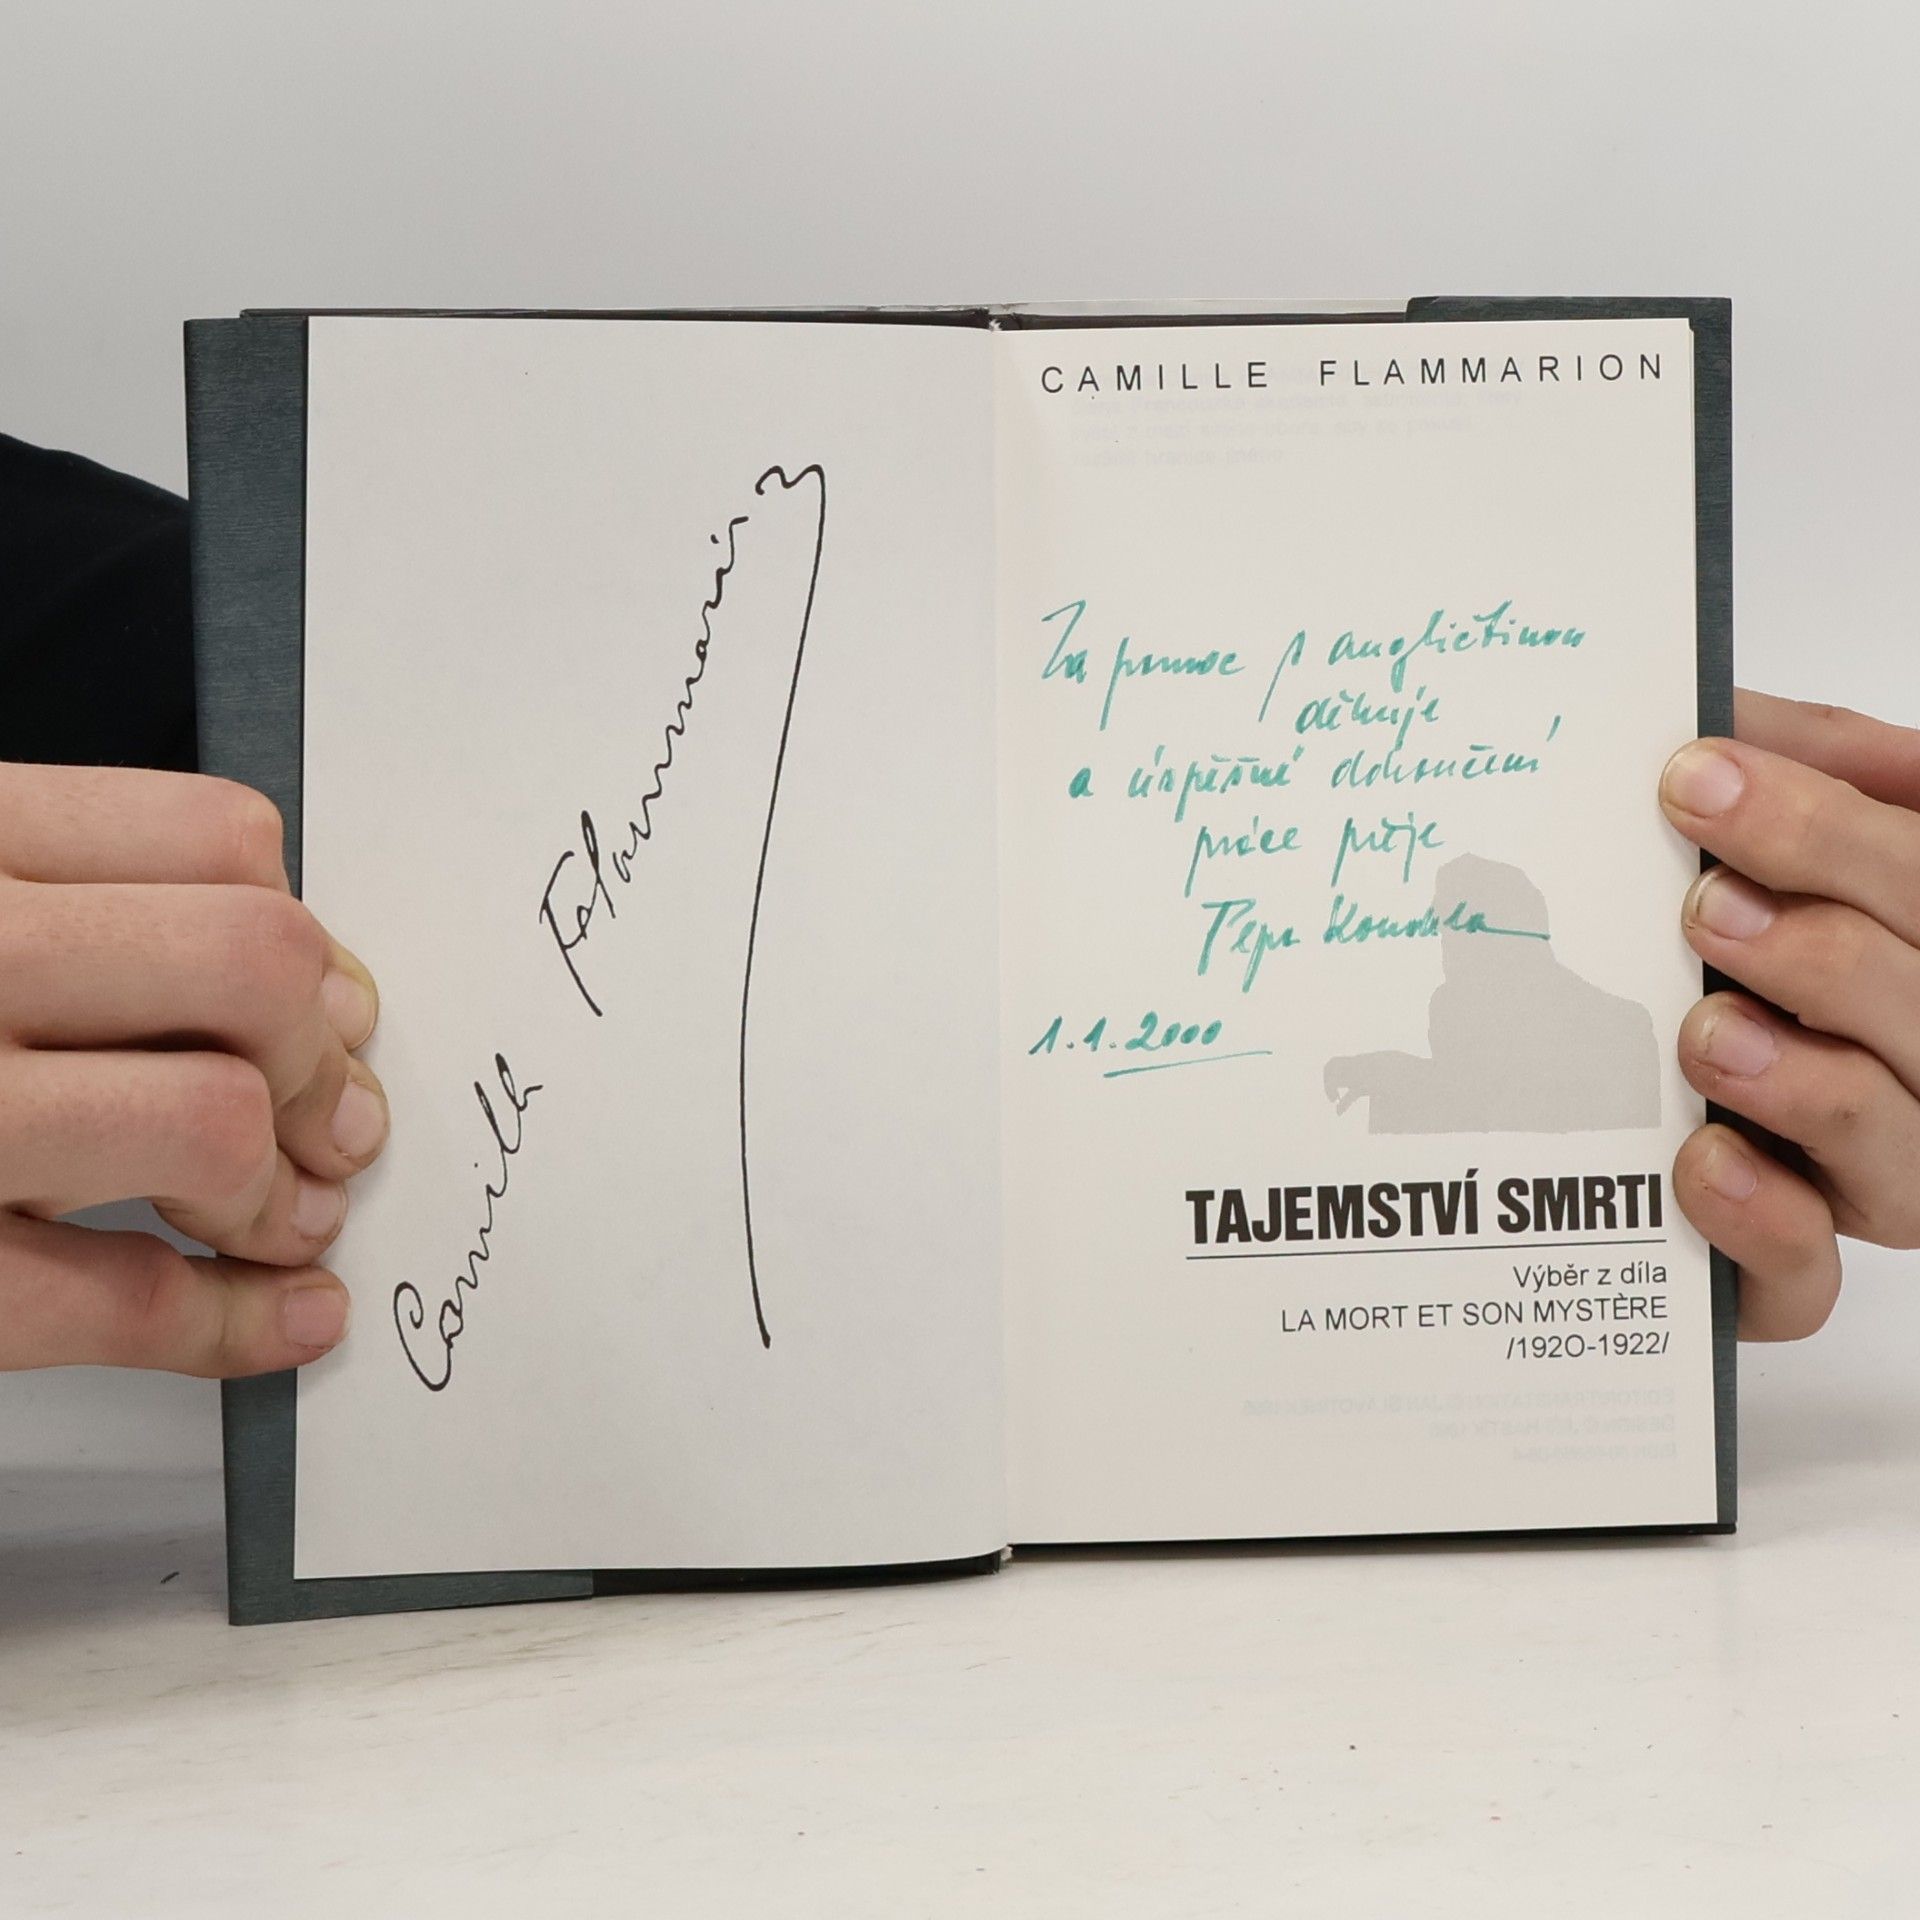 Camille Flammarion
CAMILLE FLAMMARION
Za pomoc s angličtinou
děkuje
a úspěšné dokončení
práce přeje
Pepa
1.1.2000
TAJEMSTVÍ SMRTI
Výběr z díla
LA MORT ET SON MYSTÈRE
/192O-1922/